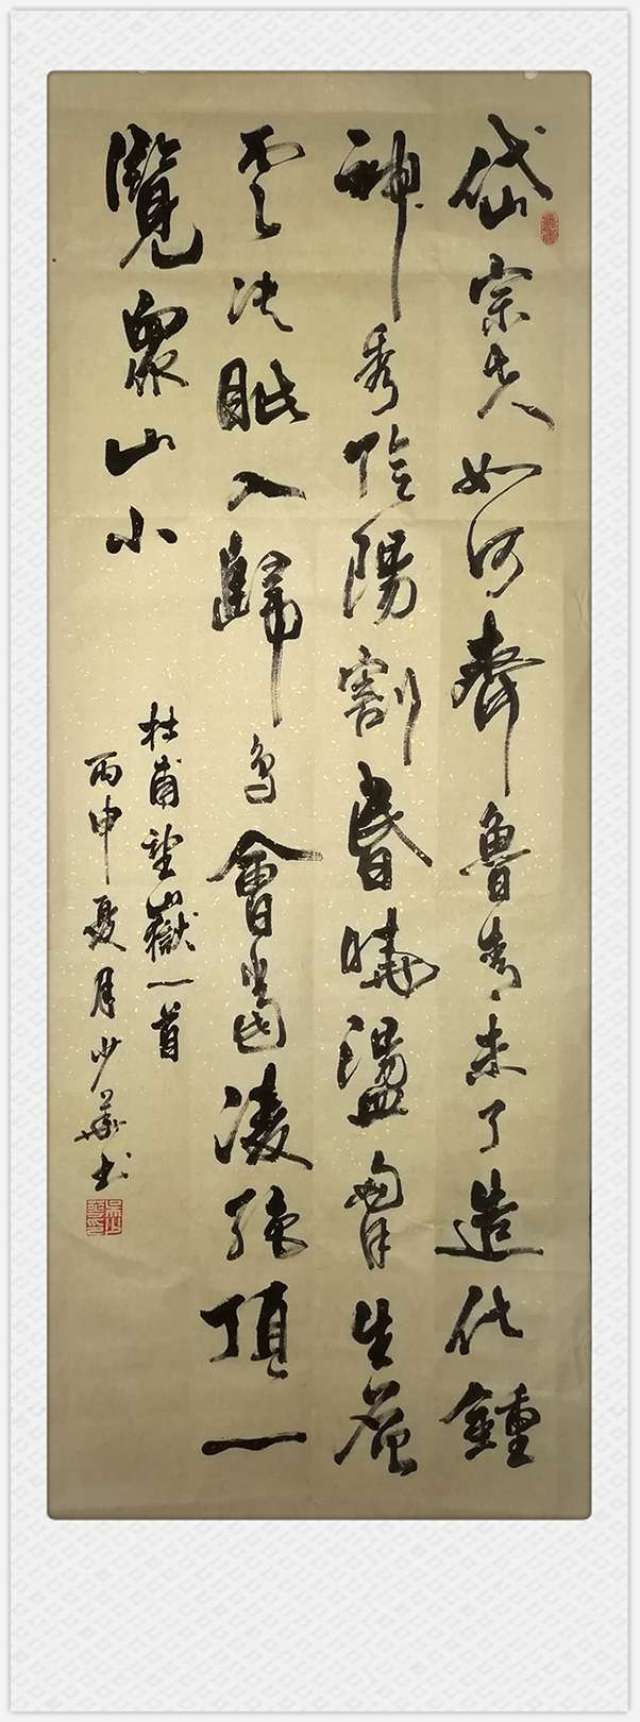 岱宗夫如何齊魯青未了造化鍾
神秀陰陽割昏曉盪胷生層
雲決眦入歸鳥會當凌絕頂一
覽眾山小
杜甫望嶽一首
丙申夏月少華書